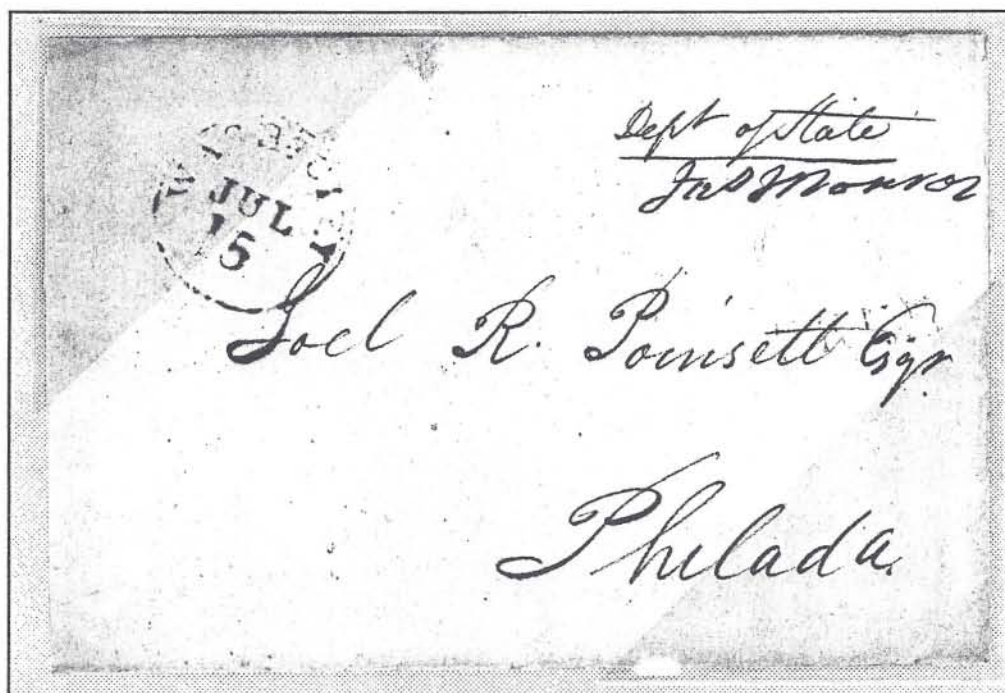 Dept of State
Jas Monroe
JUL
15
Joel R. Poinsett Esqr.
Philada.